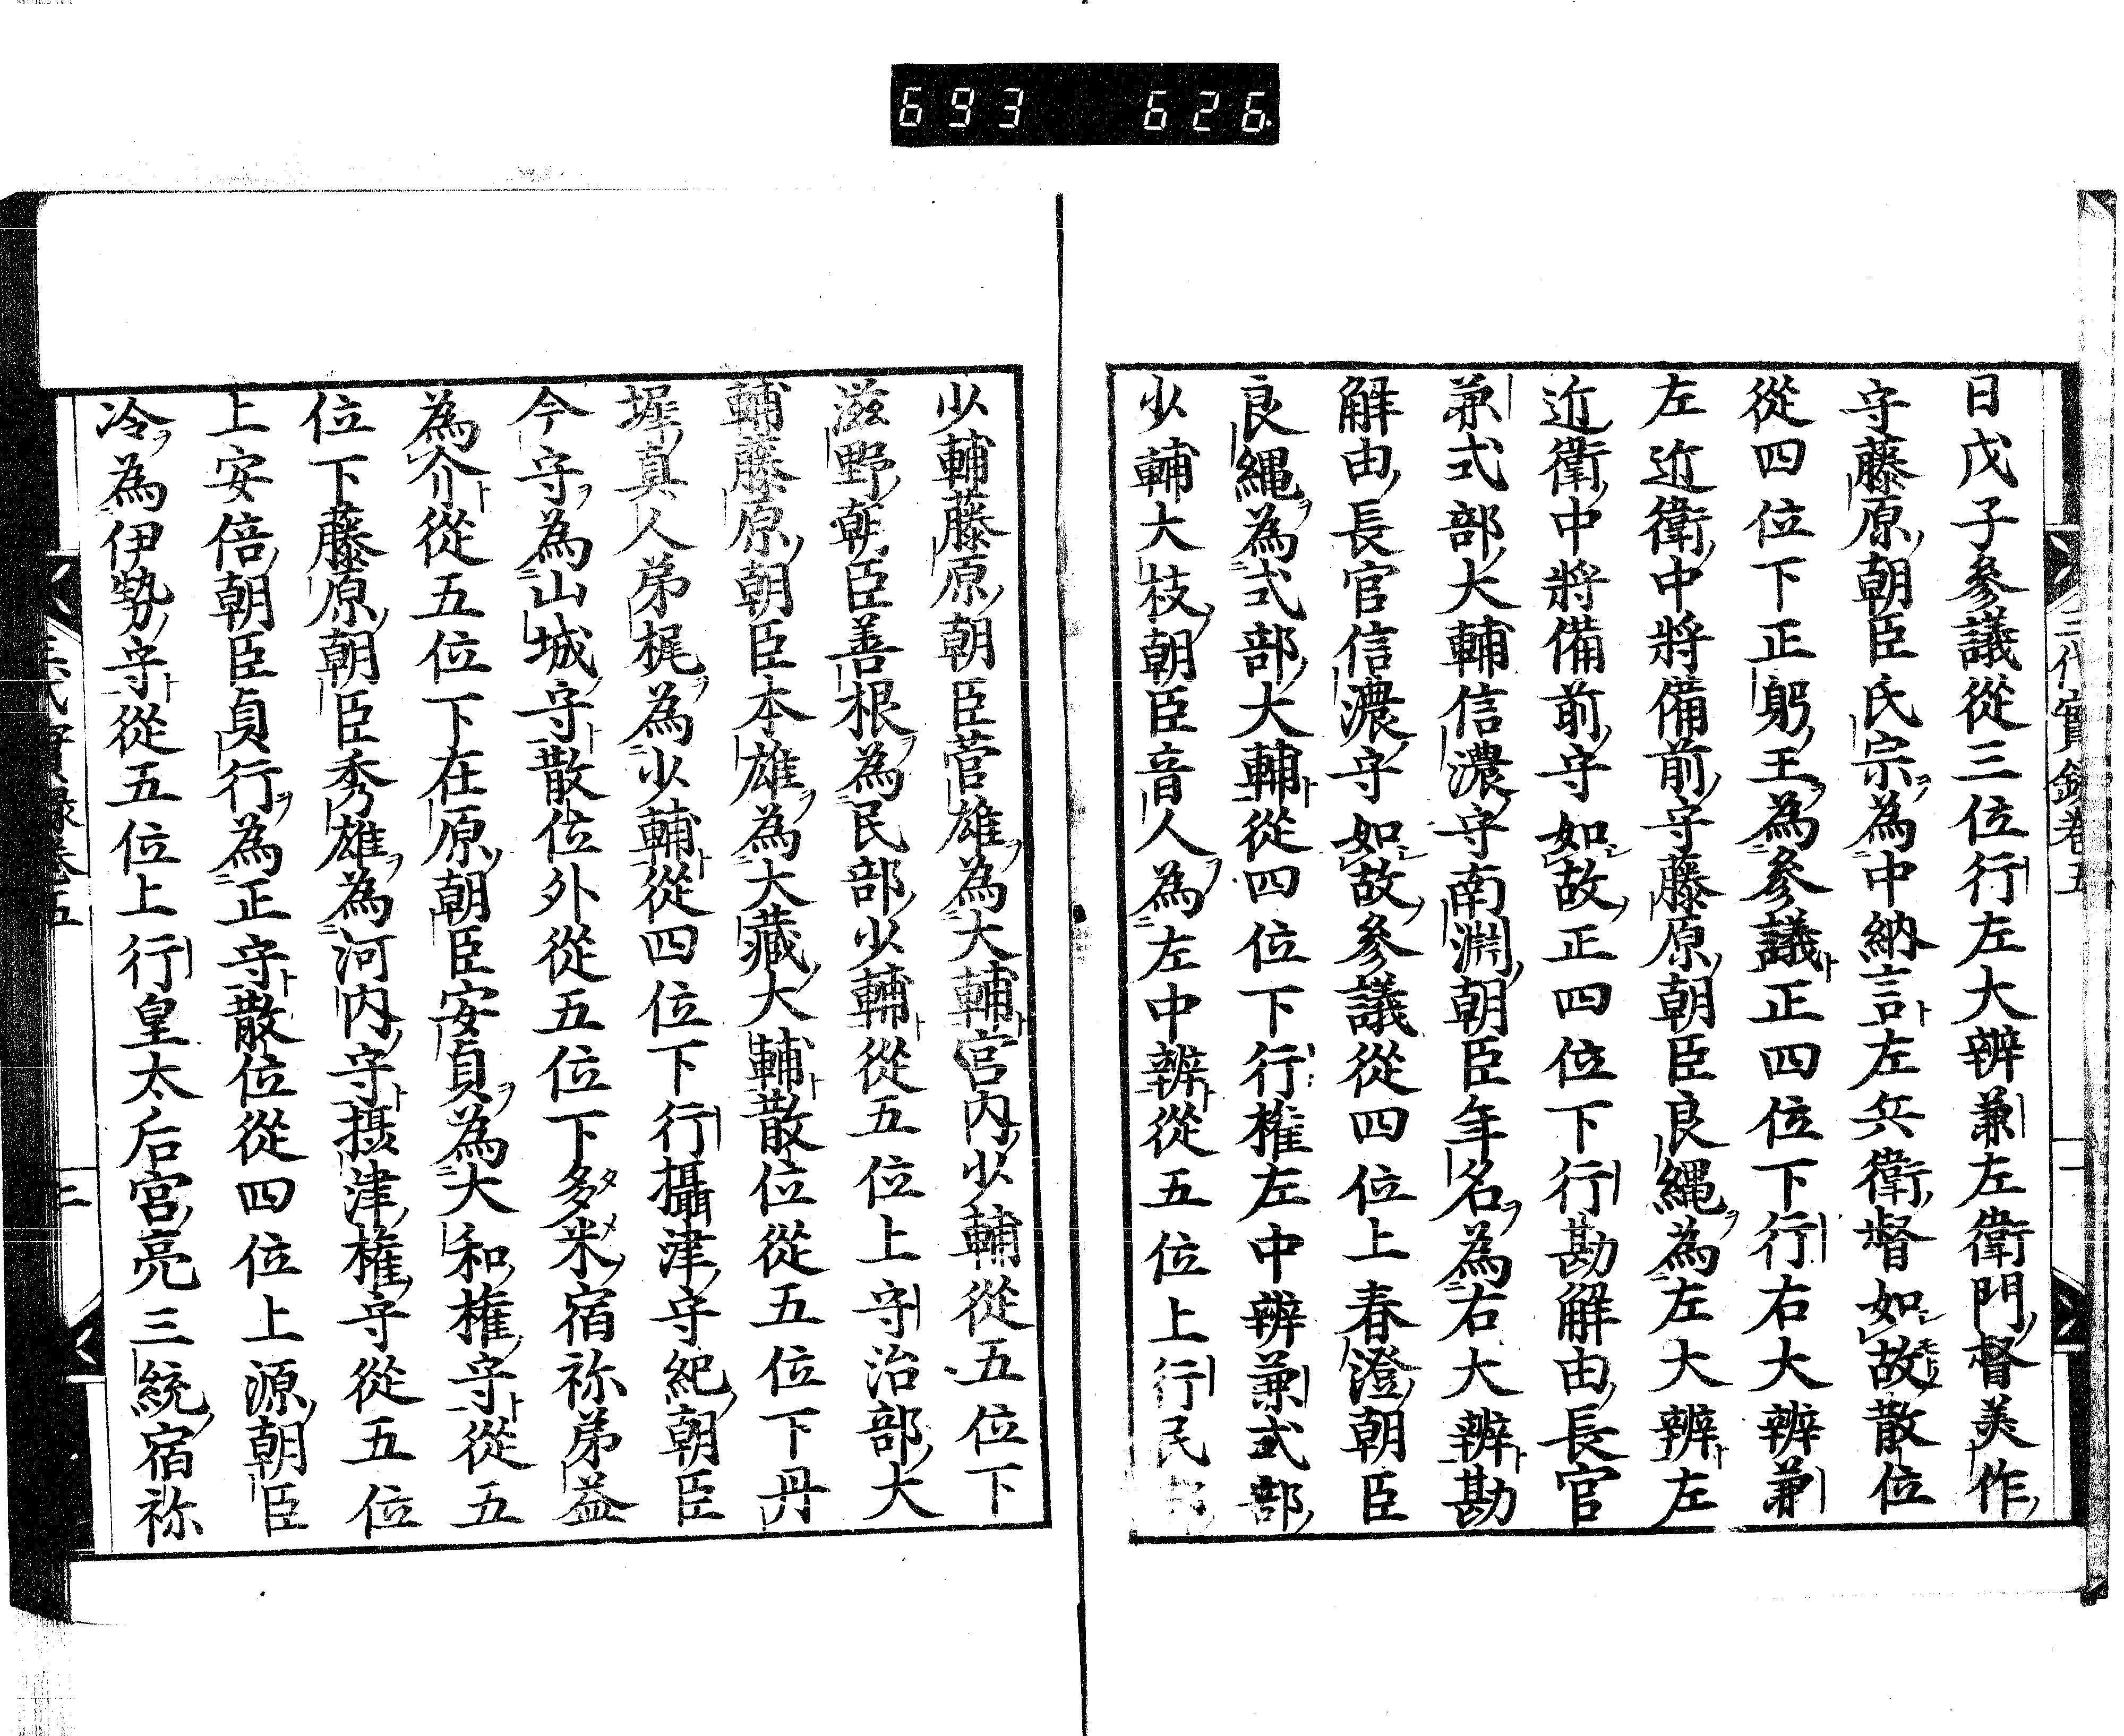 693 626
三代實録卷五
日戊子參議從三位行左大辨兼左衛門督美作
守藤原朝臣氏宗為中納言左兵衛督如故散位
從四位下正躬王為參議正四位下行右大辨兼
左近衛中將備前守藤原朝臣良縄為左大辨左
近衛中將備前守如故正四位下行勘解由長官
兼式部大輔信濃守南淵朝臣年名為右大辨勘
解由長官信濃守如故參議從四位上春澄朝臣
良縄為式部大輔從四位下行權左中辨兼式部
少輔大枝朝臣音人為左中辨從五位上行民
少輔藤原朝臣菅雄為大輔宮内少輔從五位下
滋野朝臣善根為民部少輔從五位上守治部大
輔藤原朝臣本雄為大藏大輔散位從五位下丹
墀真人弟梶為少輔從四位下行攝津守紀朝臣
今守為山城守散位外從五位下多米宿祢弟益
為介從五位下在原朝臣安貞為大和權守從五
位下藤原朝臣秀雄為河内守攝津權守從五位
上安倍朝臣貞行為正守散位從四位上源朝臣
冷為伊勢守從五位上行皇太后宮亮三統宿祢